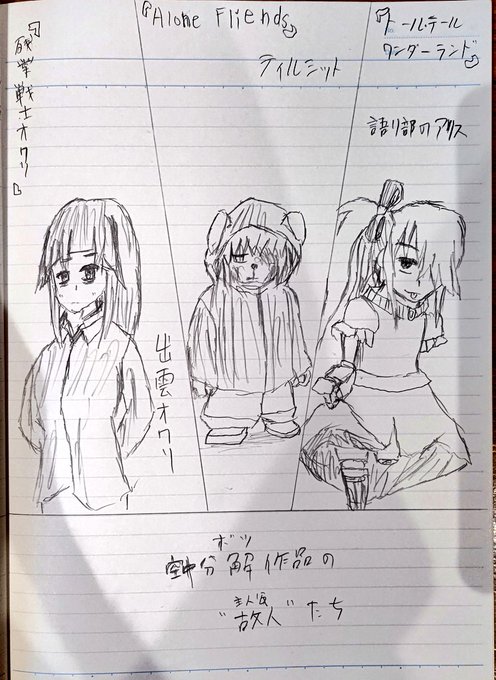 『残業戦士オクリ』
『Alone Fliends』
ティルミット
『トールテール
ワンダーランド』
語り部のアリス
出雲オクリ
ボツ
空中分解作品の
主人公
“故人”たち